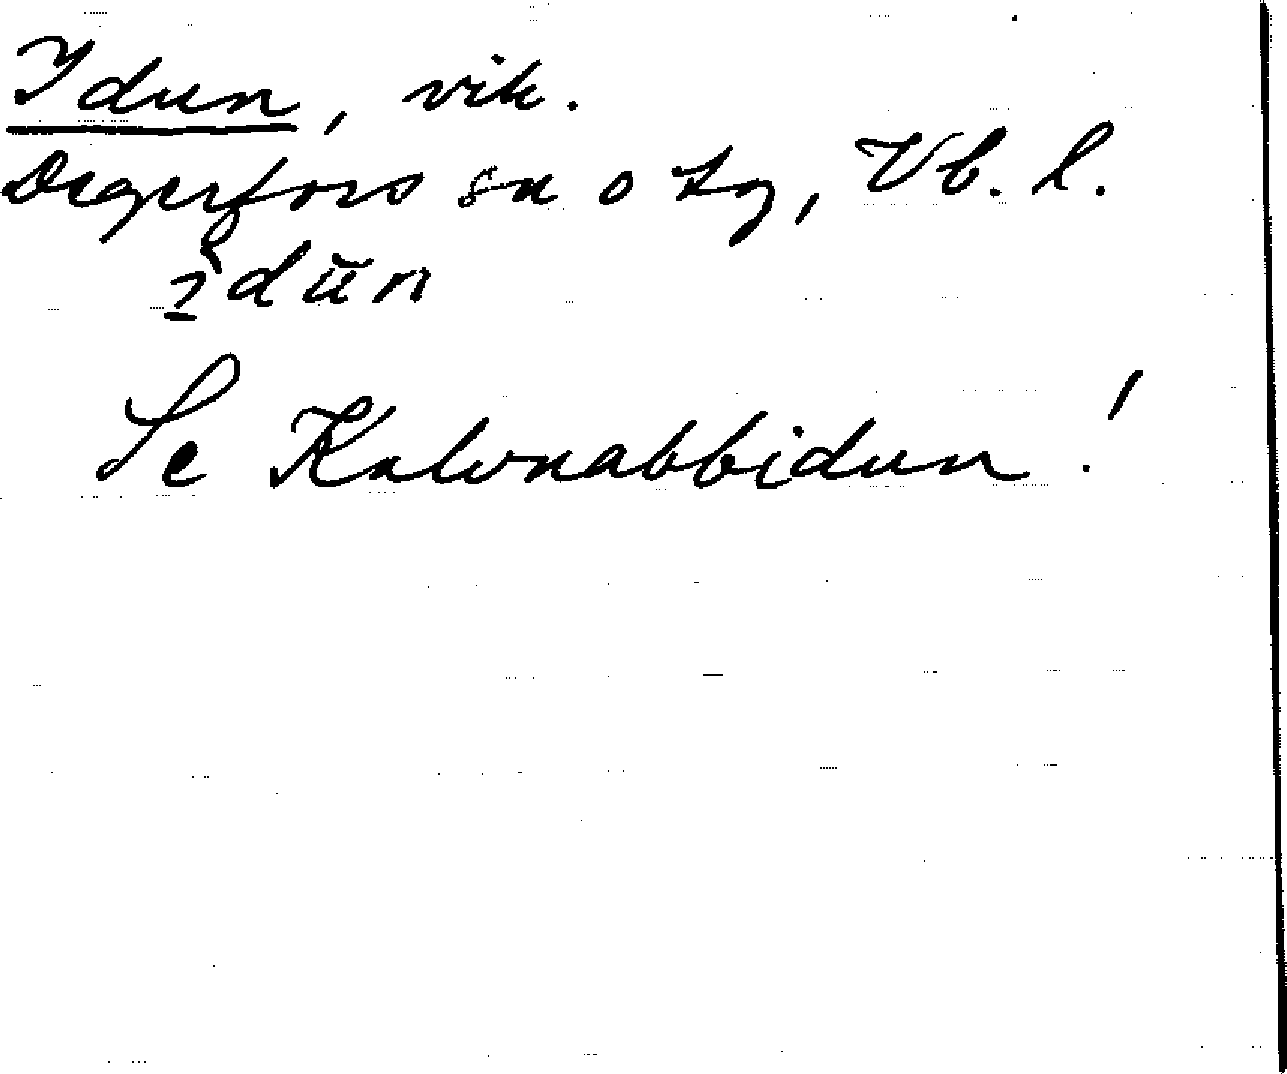 Idun, vik.
Degerfors sn o tg, Vb. l.
ìdŭn
Se Kalvnabbidun!